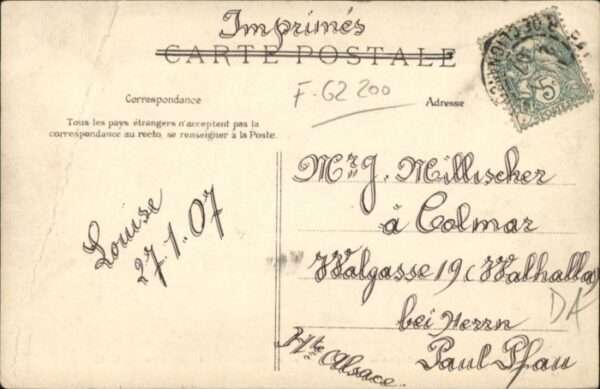 Imprimés
CARTE POSTALE
F-62 200
Correspondance
Adresse
Tous les pays étrangers n'acceptent pas la
correspondance au recto, se renseigner à la Poste.
5
Louise
27.1.07
Mr. J. Millischer
à Colmar
Walgasse 19 (Walhalla)
bei Herrn
Paul Pfau
Hte Alsace.
DA